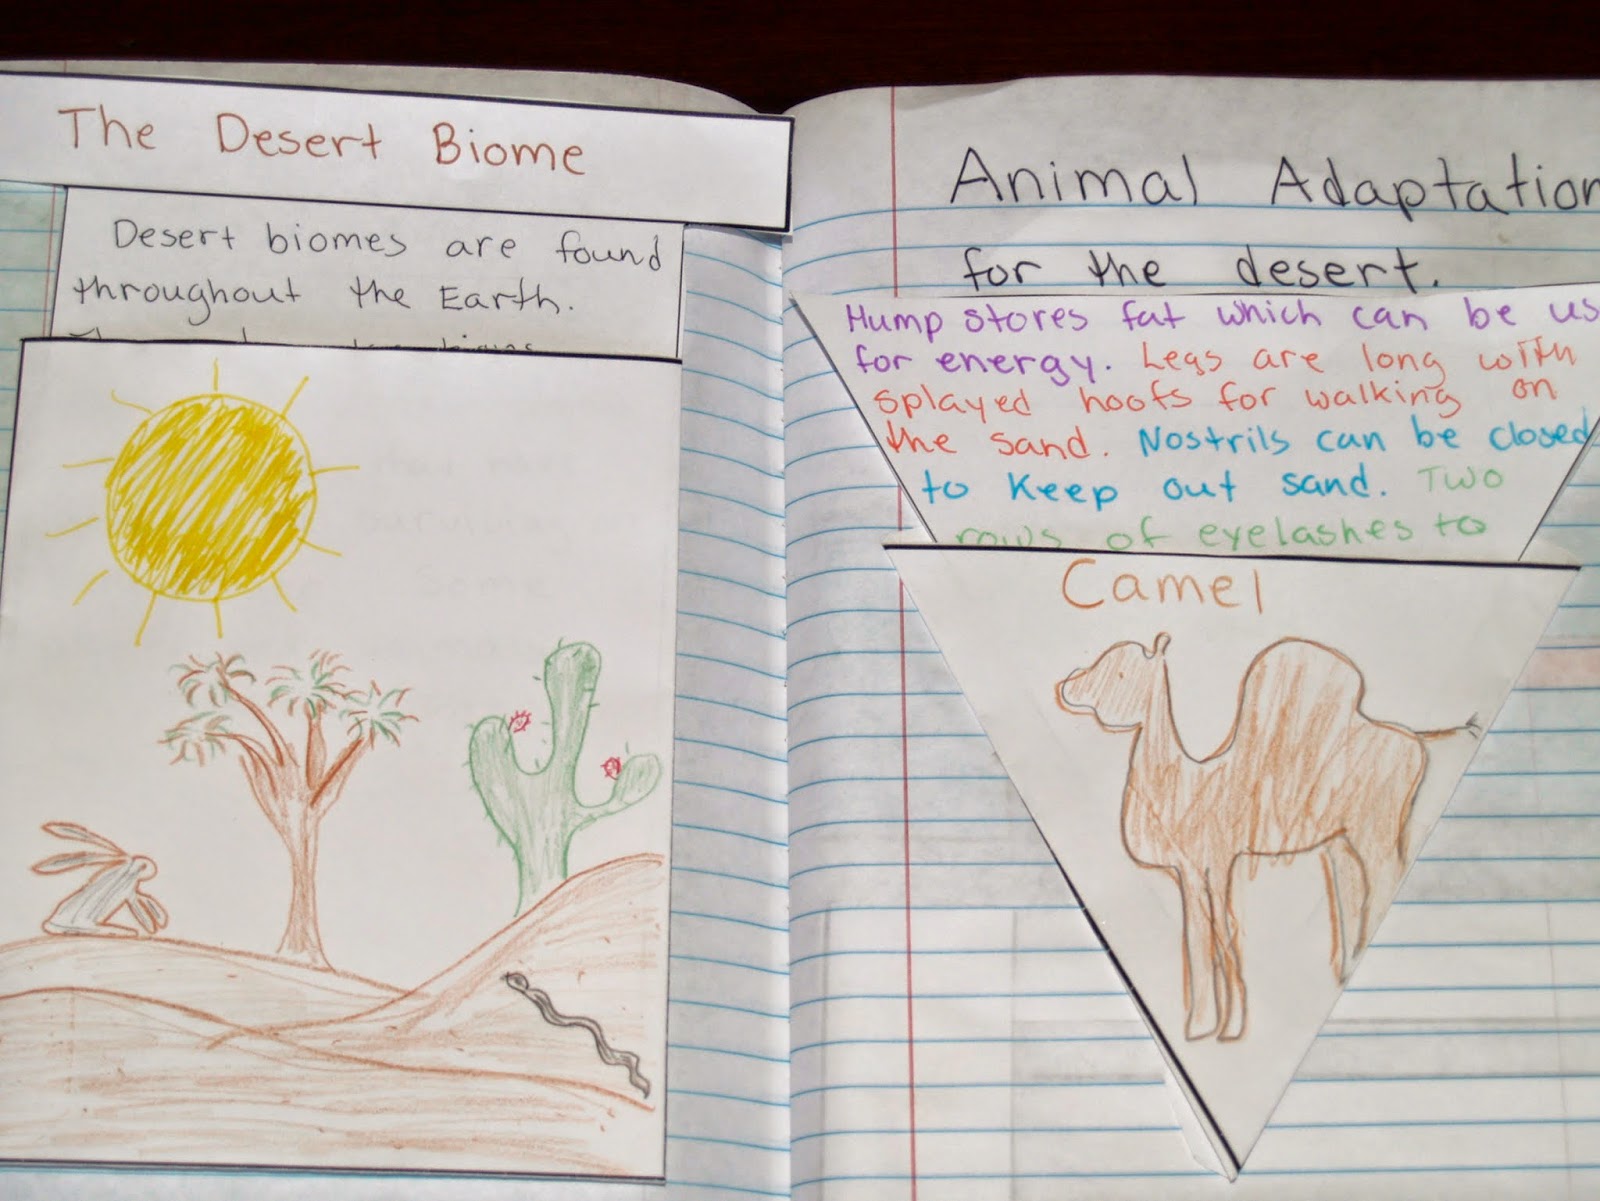 The Desert Biome
Desert biomes are found
throughout the Earth.
Animal Adaptation
for the desert.
Hump stores fat which can be us
for energy. Legs are long with
splayed hoofs for walking on
the sand. Nostrils can be closed
to keep out sand. Two
rows of eyelashes to
Camel